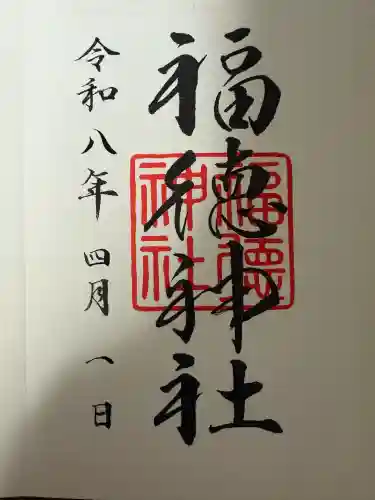 福徳神社
福徳神社
令和八年 四月 一日